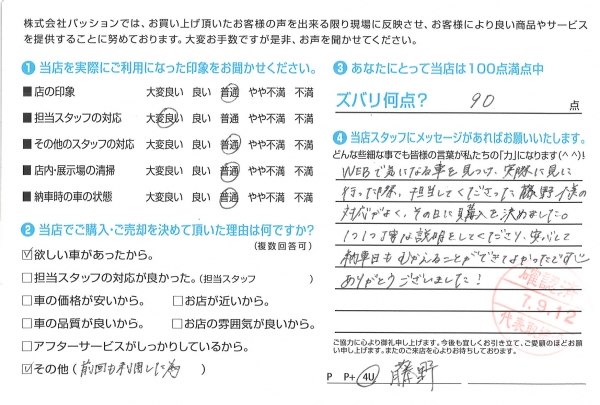 株式会社パッションでは、お買い上げ頂いたお客様の声を出来る限り現場に反映させ、お客様により良い商品やサービス
を提供することに努めております。大変お手数ですが是非、お声を聞かせてください。
❶ 当店を実際にご利用になった印象をお聞かせください。
■店の印象 大変良い 良い 普通 やや不満 不満
■担当スタッフの対応 大変良い 良い 普通 やや不満 不満
■その他のスタッフの対応 大変良い 良い 普通 やや不満 不満
■店内・展示場の清掃 大変良い 良い 普通 やや不満 不満
■納車時の車の状態 大変良い 良い 普通 やや不満 不満
❷ 当店でご購入・ご売却を決めて頂いた理由は何ですか?
(複数回答可)
☑欲しい車があったから。
□担当スタッフの対応が良かった。(担当スタッフ )
□車の価格が安いから。 □お店が近いから。
□車の品質が良いから。 □お店の雰囲気が良いから。
□アフターサービスがしっかりしているから。
☑その他(前回も利用した為)
❸ あなたにとって当店は100点満点中
ズバリ何点? 90 点
❹ 当店スタッフにメッセージがあればお願いいたします。
どんな些細な事でも皆様の言葉が私たちの「力」になります(^^)!
WEBで気になる車を見つけ、実際に見に
行った際、担当してくださった藤野様の
対応がよく、その日に購入を決めました。
1つ1つ丁寧な説明をしてくださり、安心して
納車日もむかえることができてよかったです
ありがとうございました!
確認済
7.9.12
代表取締役
ご協力に心より御礼申し上げます。今後も宜しくお引き立て、ご愛顧のほどお願
い申し上げます。またのご来店を心よりお待ちしております。
P P+ 4U 藤野